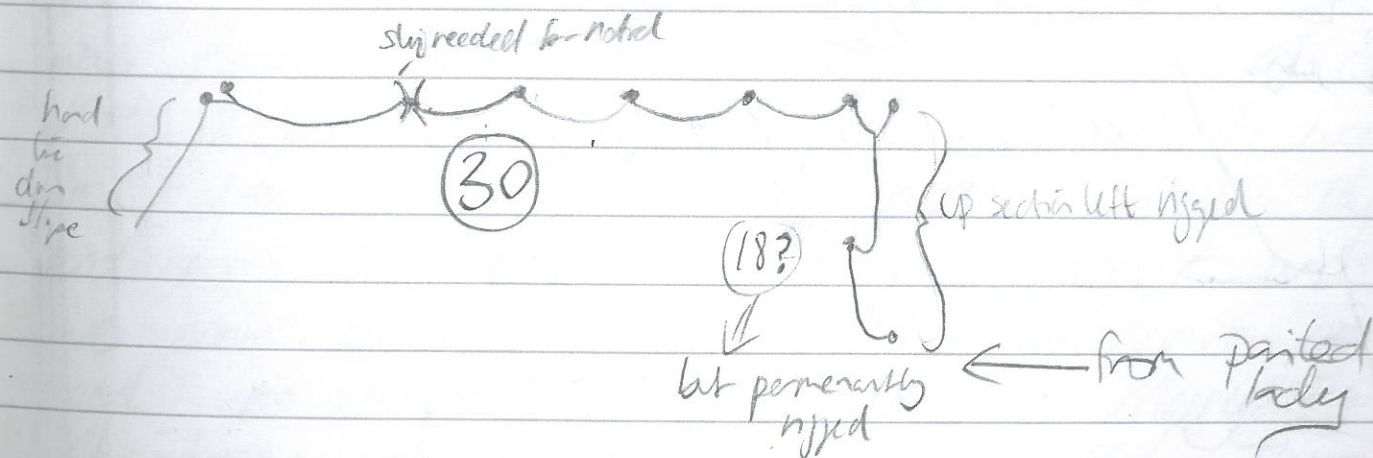 sling needed for natural
hand
line
down
slope
30
up section left rigged
18?
but permenantly
rigged
from painted
body